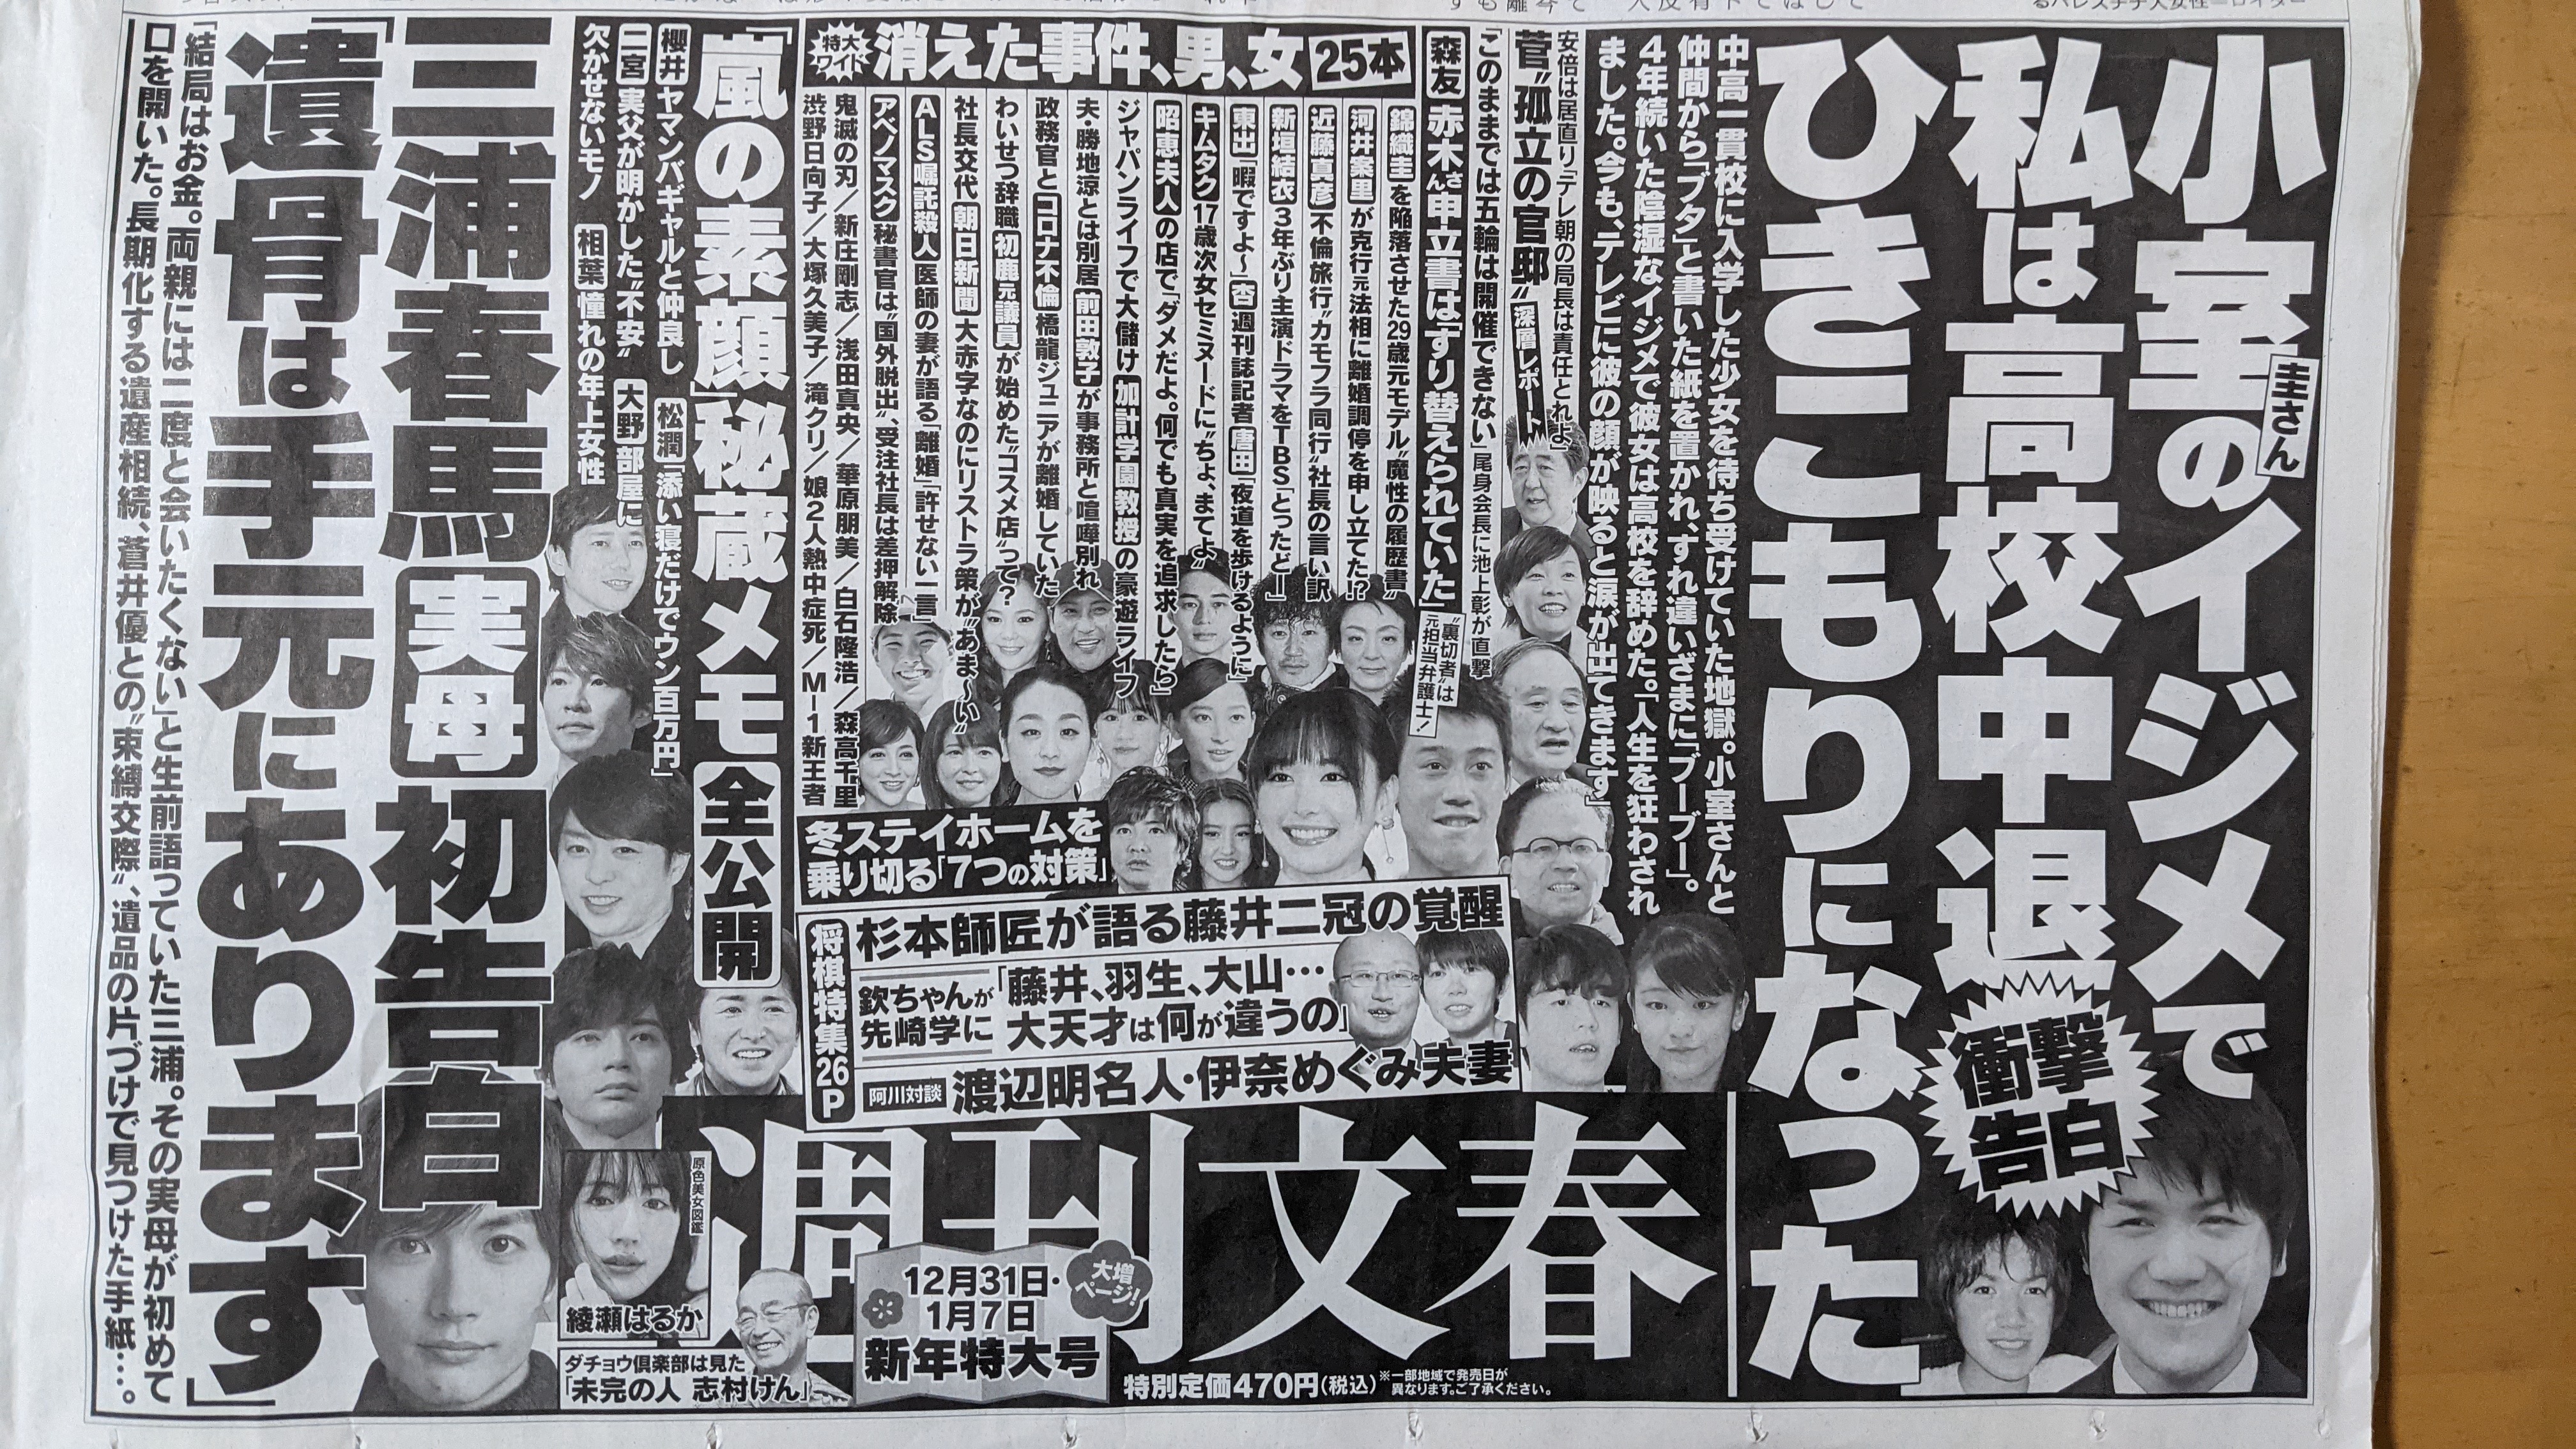 小室圭さんのイジメで
私は高校中退
ひきこもりになった
衝撃告白
中高一貫校に入学した少女を待ち受けていた地獄。小室さんと
仲間から「ブタ」と書いた紙を置かれ、すれ違いざまに「ブーブー」。
4年続いた陰湿なイジメで彼女は高校を辞めた。「人生を狂わされ
ました。今も、テレビに彼の顔が映ると涙が出てきます」
安倍は居直り「テレ朝の局長は責任とれよ」
菅〝孤立の官邸〟深層レポート
「このままでは五輪は開催できない」尾身会長に池上彰が直撃
森友 赤木さん申立書は「すり替えられていた」
〝裏切者〟は元担当弁護士!
特大ワイド 消えた事件、男、女 25本
錦織圭を陥落させた29歳元モデル〝魔性の履歴書〟
河井案里が克行元法相に離婚調停を申し立てた!?
近藤真彦 不倫旅行〝カモフラ同行〟社長の言い訳
新垣結衣 3年ぶり主演ドラマをTBS「とったどー」
東出「暇ですよ〜」 杏 週刊誌記者 唐田「夜道を歩けるように」
キムタク 17歳次女セミヌードに〝ちょ、まてよ〟
昭恵夫人の店で「ダメだよ。何でも真実を追求したら」
ジャパンライフで大儲け 加計学園教授の豪遊ライフ
夫・勝地涼とは別居 前田敦子が事務所と喧嘩別れ
政務官とコロナ不倫 橋龍ジュニアが離婚していた
わいせつ辞職 初鹿元議員が始めた〝コスメ店〟って?
社長交代 朝日新聞 大赤字なのにリストラ策が〝あま〜い〟
ALS嘱託殺人 医師の妻が語る「離婚」「許せない一言」
アベノマスク 秘書官は〝国外脱出〟、受注社長は差押解除
鬼滅の刃/新庄剛志/浅田真央/華原朋美/白石隆浩/森高千里
渋野日向子/大塚久美子/滝クリ/娘2人熱中症死/M-1新王者
冬ステイホームを
乗り切る「7つの対策」
将棋特集26P
杉本師匠が語る藤井二冠の覚醒
欽ちゃんが
先崎学に
「藤井、羽生、大山…
大天才は何が違うの」
阿川対談 渡辺明名人・伊奈めぐみ夫妻
「嵐の素顔」秘蔵メモ 全公開
櫻井 ヤマンバギャルと仲良し 松潤「添い寝だけでウン百万円」
二宮 実父が明かした〝不安〟 大野 部屋に
欠かせないモノ 相葉 憧れの年上女性
三浦春馬 実母 初告白
「遺骨は手元にあります」
「結局はお金。両親には二度と会いたくない」と生前語っていた三浦。その実母が初めて
口を開いた。長期化する遺産相続、蒼井優との〝束縛交際〟、遺品の片づけで見つけた手紙…。
週刊文春
原色美女図鑑
綾瀬はるか
ダチョウ倶楽部は見た
「未完の人 志村けん」
12月31日・
1月7日
新年特大号
大増ページ!
特別定価470円(税込)
※一部地域で発売日が
異なります。ご了承ください。